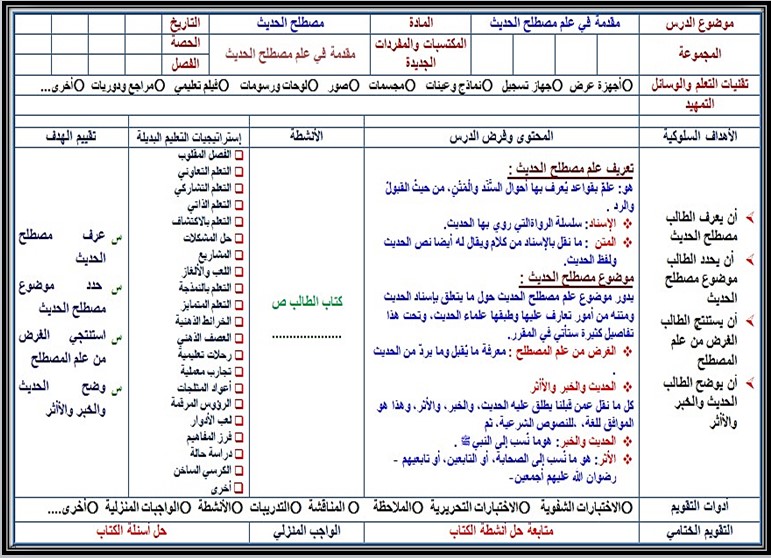 موضوع الدرس
مقدمة في علم مصطلح الحديث
المادة
مصطلح الحديث
التاريخ
المجموعة
المكتسبات والمفردات الجديدة
مقدمة في علم مصطلح الحديث
الحصة
الفصل
تقنيات التعلم والوسائل
Oأجهزة عرض Oجهاز تسجيل Oنماذج وعينات Oمجسمات Oصور Oلوحات ورسومات Oفيلم تعليمي Oمراجع ودوريات Oأخرى...
التمهيد
الأهداف السلوكية
المحتوى وفرض الدرس
الأنشطة
إستراتيجيات التعليم البديلة
تقييم الهدف
أن يعرف الطالب
مصطلح الحديث
أن يحدد الطالب
موضوع مصطلح
الحديث
أن يستنتج الطالب
الغرض من علم
المصطلح
أن يوضح الطالب
الحديث والخبر
والأأثر
تعريف علم مصطلح الحديث :
هو: علمٌ بقواعد يُعرف بها أحوال السَّنَد والمَتْنِ، من حيثُ القبولُ
والرد .
❖ الإسناد: سلسلة الرواةالتي روي بها الحديث.
❖ المتن : ما نقل بالإسناد من كلام ويقال له أيضا نص الحديث
ولفظ الحديث.
موضوع مصطلح الحديث :
يدور موضوع علم مصطلح الحديث حول ما يتعلق بإسناد الحديث
ومتنه من أمور تعارف عليها وطبقها علماء الحديث، وتحت هذا
تفاصيل كثيرة ستأتي في المقرر.
❖ الغرض من علم المصطلح : معرفة ما يُقبل وما يردّ من الحديث
.
❖ الحديث والخبر والأأثر
كل ما نقل عمن قبلنا يطلق عليه الحديث، والخبر، والأثر، وهذا هو
الموافق للغة، ،للنصوص الشرعية، ثم
❖ الحديث والخبر: هوما نُسب إلى النبي ﷺ .
❖ الأثر: هو ما نُسب إلى الصحابة، أو التابعين، أو تابعيهم -
رضوان الله عليهم أجمعين-
كتاب الطالب ص
....................
❑ الفصل المقلوب
❑ التعلم التعاوني
❑ التعلم التشاركي
❑ التعلم الذاتي
❑ التعلم بالاكتشاف
❑ حل المشكلات
❑ المشاريع
❑ اللعب والألغاز
❑ التعلم بالنمذجة
❑ التعلم المتمايز
❑ الخرائط الذهنية
❑ العصف الذهني
❑ رحلات تعليمية
❑ تجارب معملية
❑ أعواد المثلجات
❑ الرؤوس المرقمة
❑ لعب الأدوار
❑ فرز المفاهيم
❑ دراسة حالة
❑ الكرسي الساخن
❑ أخرى
س عرف مصطلح
الحديث
س حدد موضوع
مصطلح الحديث
س استنتجي الغرض
من علم المصطلح
س وضح الحديث
والخبر والأأثر
أدوات التقويم
Oالاختبارات الشفوية Oالاختبارات التحريرية Oالملاحظة O المناقشة O التدريبات Oالأنشطة Oالواجبات المنزلية Oأخرى....
التقويم الختامي
متابعة حل أنشطة الكتاب
الواجب المنزلي
حل أسئلة الكتاب